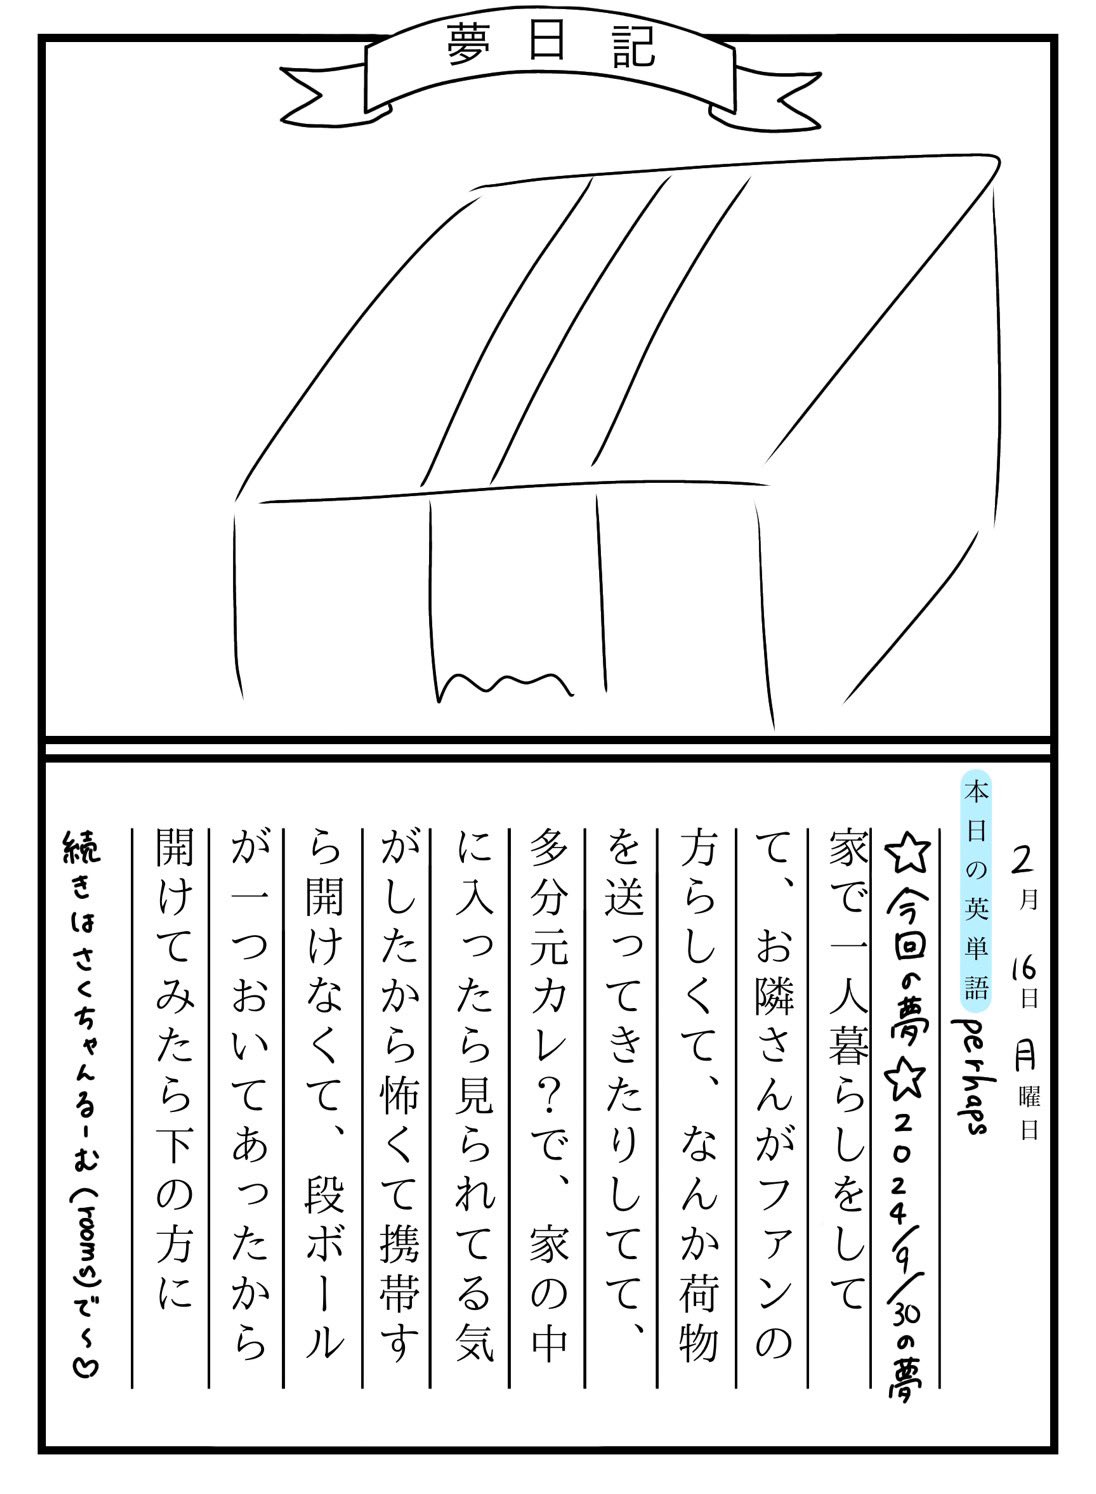 夢日記
2月16日月曜日
本日の英単語 perhaps
☆今回の夢☆2024/9/30の夢
家で一人暮らしをして
て、お隣さんがファンの
方らしくて、なんか荷物
を送ってきたりしてて、
多分元カレ？で、家の中
に入ったら見られてる気
がしたから怖くて携帯す
ら開けなくて、段ボール
が一つおいてあったから
開けてみたら下の方に
続きはさくちゃんるーむ(rooms)で〜♡